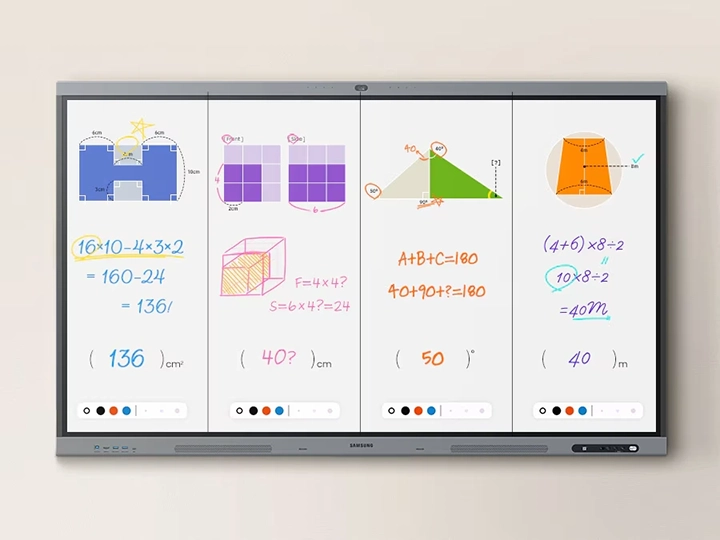 6cm
6cm
10cm
3cm
16×10-4×3×2
= 160-24
= 136
( 136 ) cm²
[Front]
[Side]
4
2cm
6
F=4×4?
S=6×4?=24
( 40? ) cm
40
60°
[?]
50°
90°
A+B+C=180
40+90+?=180
( 50 )°
8m
(4+6)×8÷2
=
10×8÷2
=40m
( 40 ) m
SAMSUNG